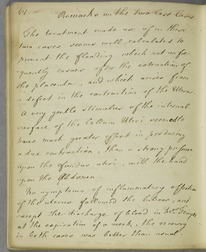 61 Remarks on the two last Cases
The treatment made use of in these
two cases seems well calculated to
prevent the flooding which not unfre
quently comes after the extraction of
the placenta, and which arises from
a defect in the contraction of the Uterus
A very gentle stimulus of the internal
surface of the Collum Uteri
have much greater effect in producing
a due contraction, than a strong pressure
upon the fundus uteri, with the hand
upon the Abdomen.
No symptoms of inflammatory affection
of the uterus followed the labour, and
except the discharge of blood in
at the expiration of a week, the recovery
in both cases was better than usual.